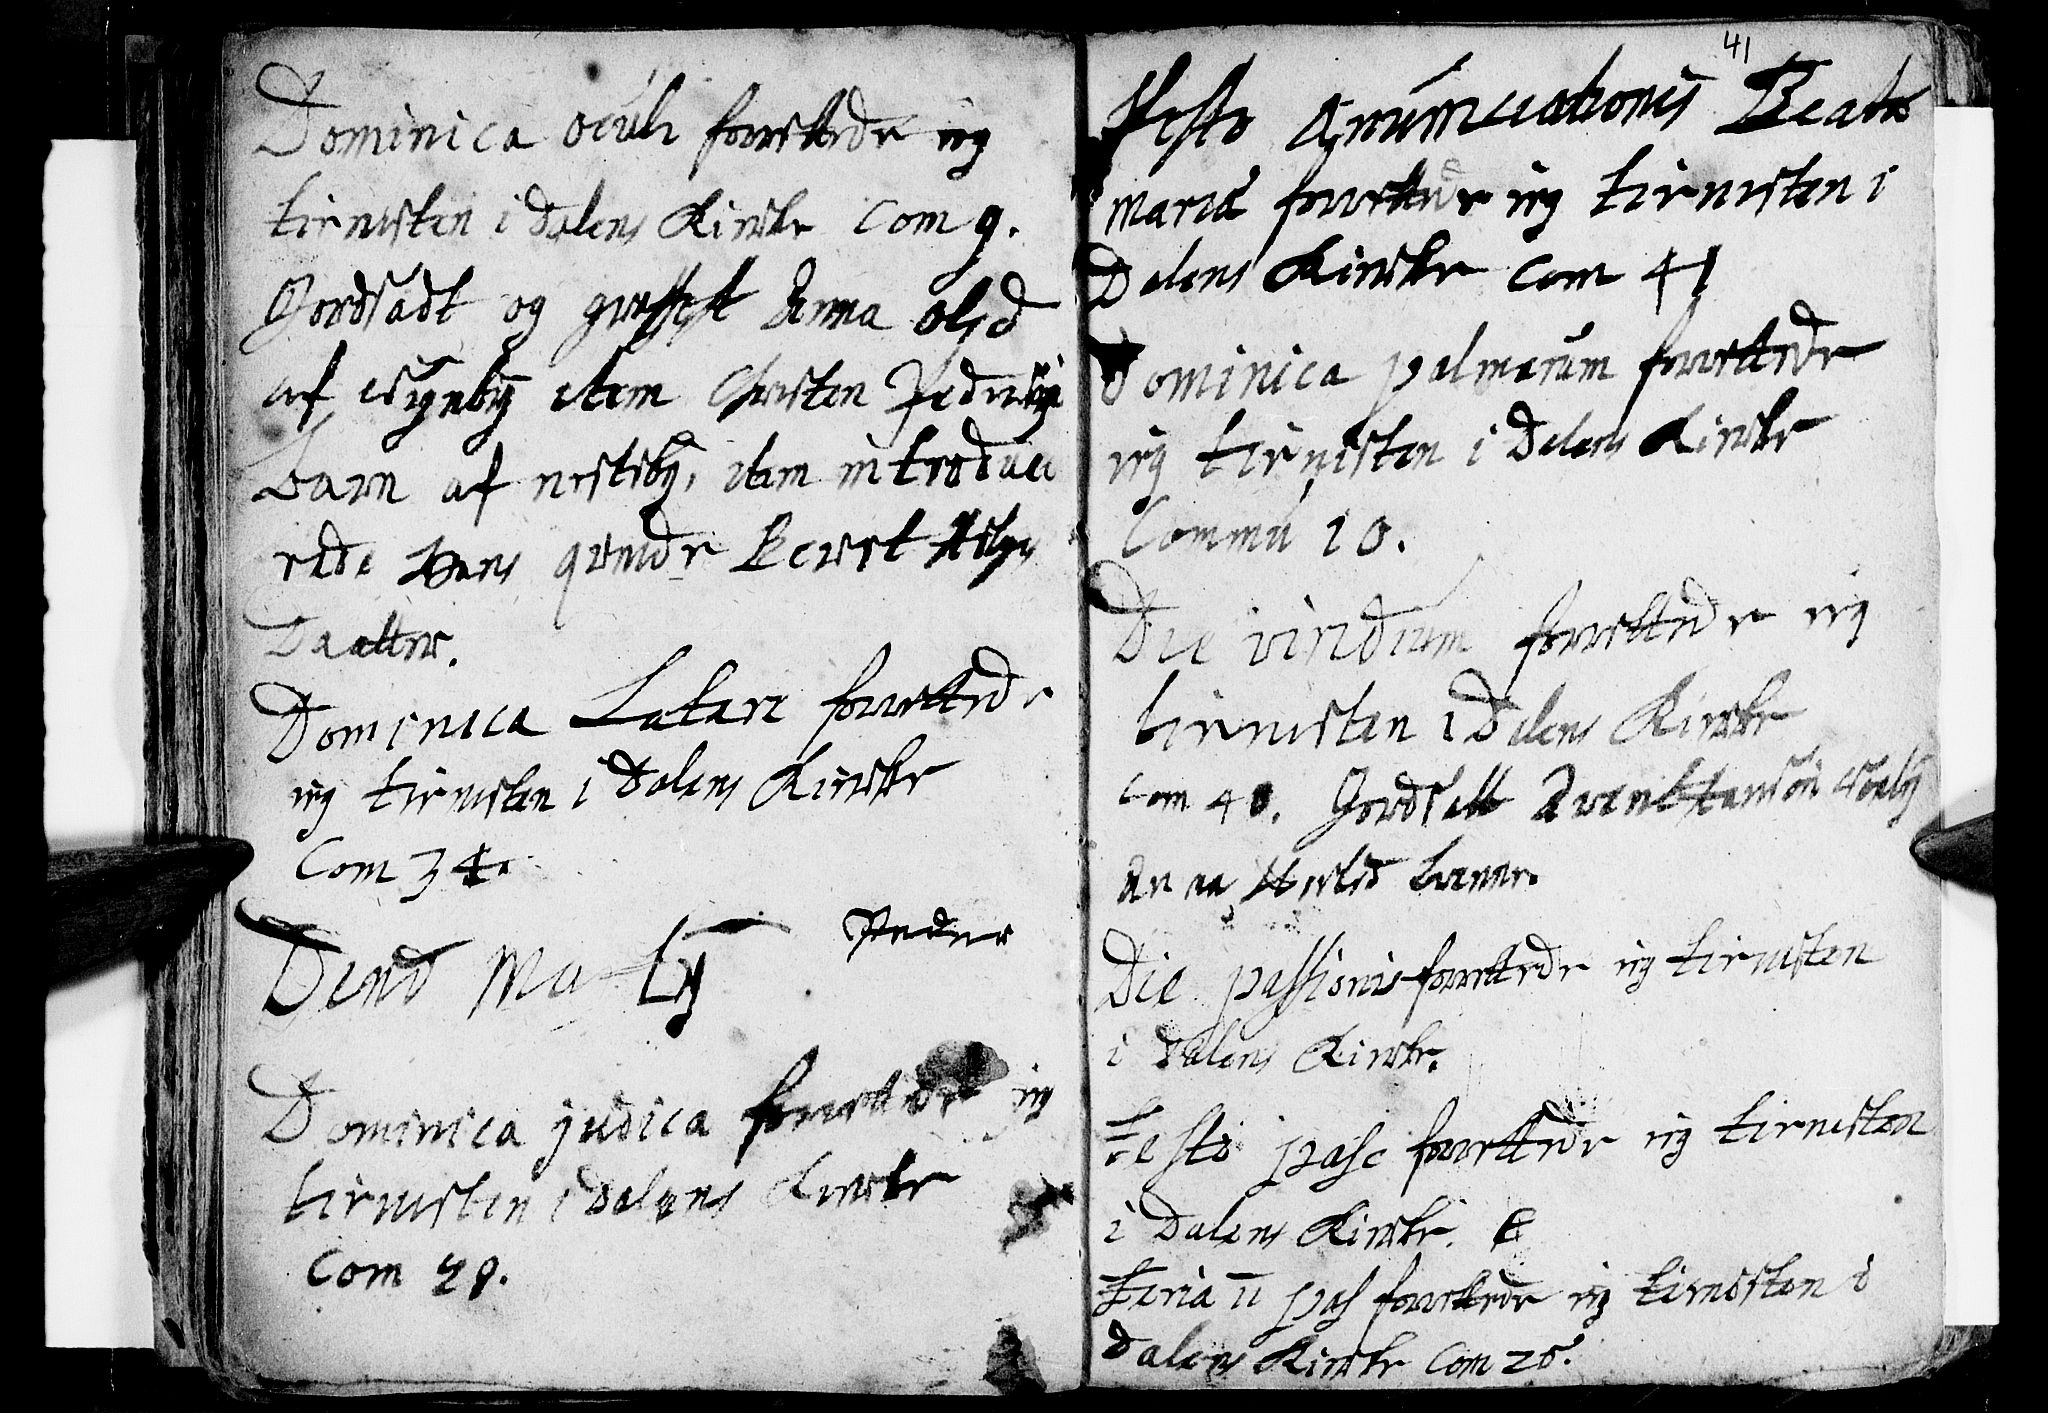 Dominica oculi forrettede ieg
tienisten i Dalens Kircke Com 9.
Jordsadt og græffest Anna olsd
af item Christen Peders
barn af nesteby, item introduce
rede Hans qvinde Berret
Daatter.
Dominica Latare forrettede
ieg tienisten i Dalens Kircke
Com 34.
Peder
Dend
Dominica judica forrettede ieg
tienisten i Dalens Kircke
Com 28.
41
Festo Anunciationis Beatæ
Mariæ forrettede ieg tienisten i
Dalens Kircke Com 41
Dominica palmarum forrettede
ieg tienisten i Dalens Kircke
Commu 10.
Die viridium forrettede ieg
tienisten i Dalens Kircke
Com 40. Jordsatt
Anna
Die passionis forrettede ieg tienisten
i Dalens Kircke.
Festo pasc forrettede ieg tienisten
i Dalens Kircke.
Feria II pas forrettede ieg tienisten i
Dalens Kircke Com 26.